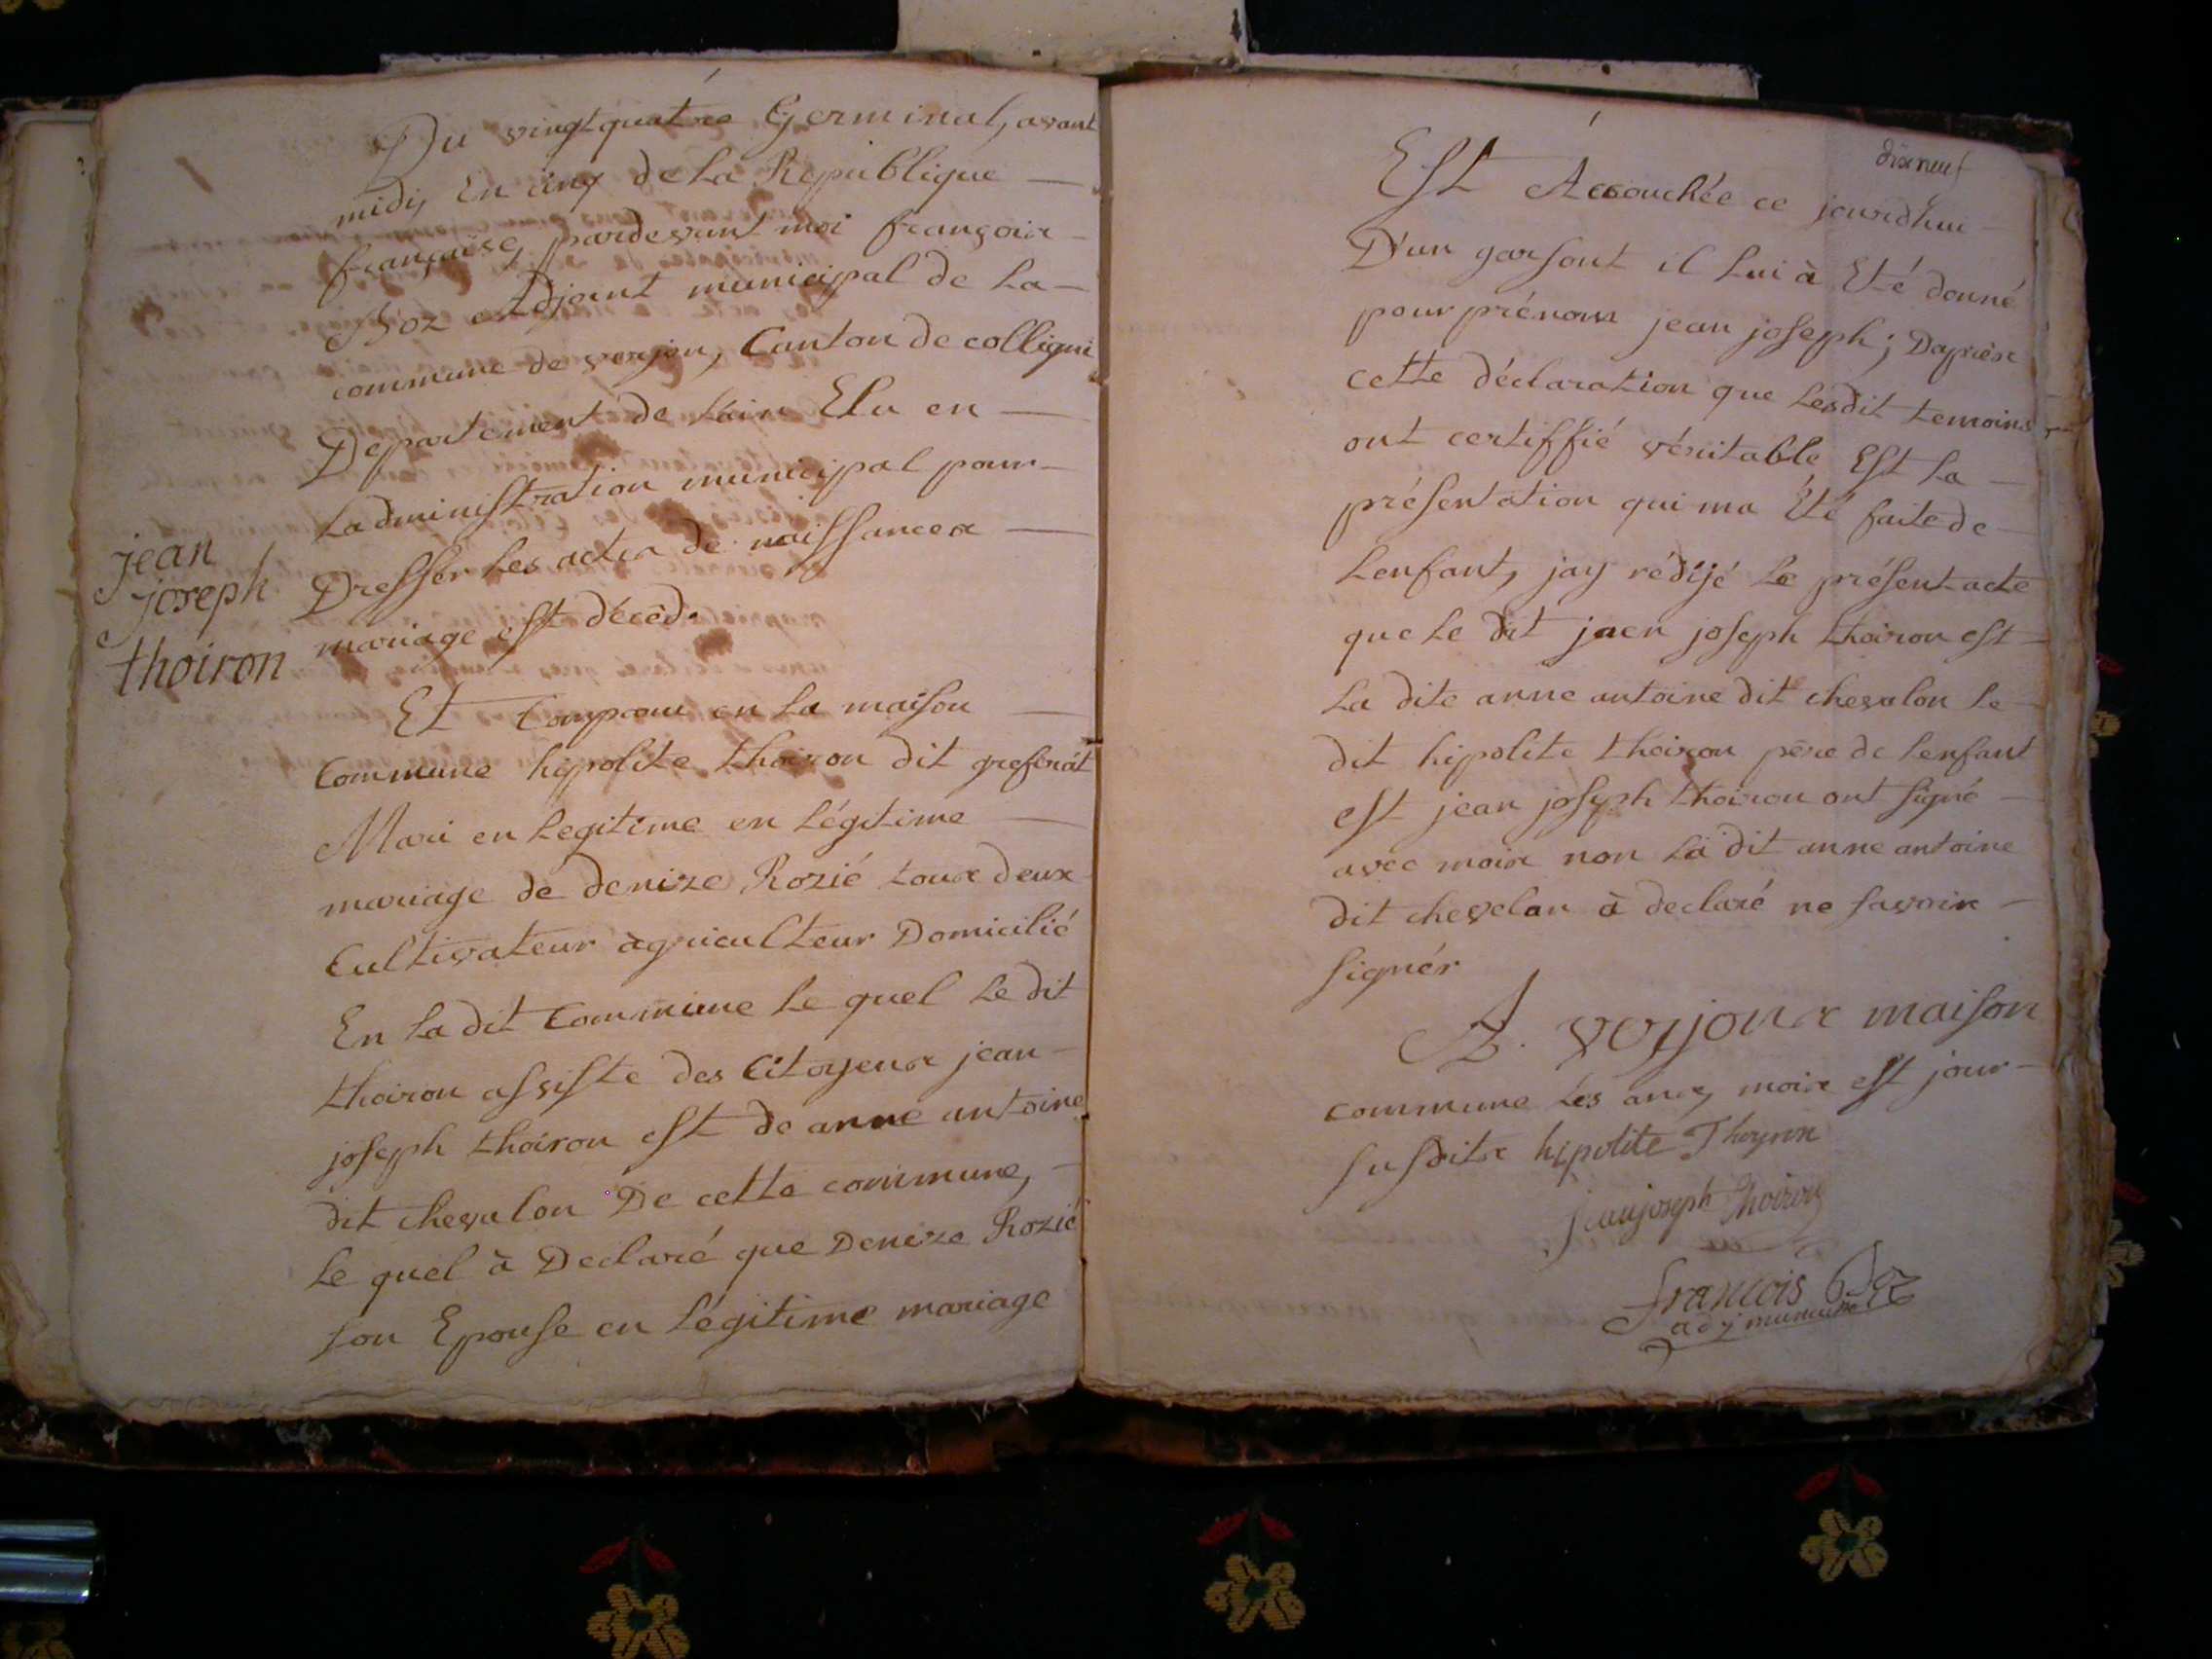 Du vingtquatre Germinal, avant
midi, En cinq de la Republique
française, pardevant moi françois
Boz Adjoint municipal de la
commune de verjon, Canton de colligni
Departement de lain Elu en
Ladministration municipal pour
Dresser les actes de naissances
mariage est décéd.
jean
joseph
thoiron
Et Comparu en la maison
Commune hipolite thoiron dit grefinat
Mari en legitime en légitime
mariage de denize Rozié tous deux
Cultivateur àgriculteur Domicilié
En la dit Commune le quel le dit
thoiron assiste des Citoyens jean
joseph thoiron est de anne antoine
dit chevalon De cette commune,
le quel à Declaré que Denize Rozié
son Epouse en légitime mariage
dixneuf
Est Accouchée ce jourdhui
D'un garsont il lui à Eté donné
pour prénom jean joseph ; Daprès
cette déclaration que lesdit temoins
ont certiffié véritable Est la
présentation qui ma Eté faite de
Lenfant, jay rédijé le présent acte
que le dit jaen joseph thoiron est
la dite anne antoine dit chevalon le
dit hipolite thoiron père de lenfant
est jean joseph thoiron ont signé
avec mois non la dit anne antoine
dit chevelan à declaré ne savoir
signér
A. verjons maison
commune les ans, mois est jour
susdits hipolite Thoyron
jeanjoseph thoiron
francois Boz
adj municipal